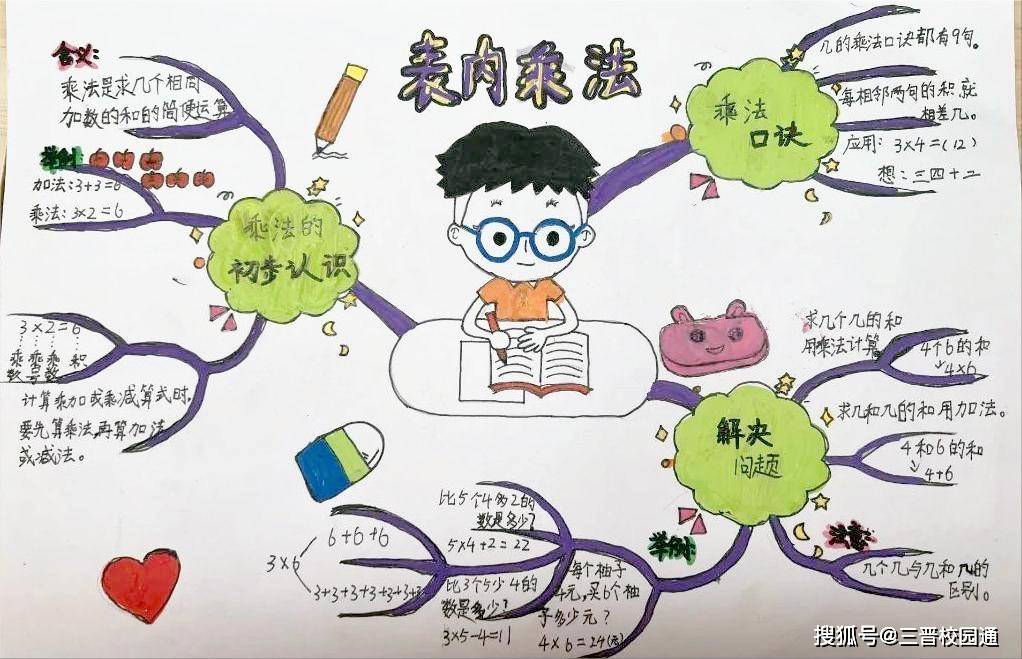 表内乘法
含义:
乘法是求几个相同
加数的和的简便运算
举例:
加法:3+3=6
乘法:3×2=6
乘法的
初步认识
3×2=6
乘 乘 乘 积
数 号 数
计算乘加或乘减算式时,
要先算乘法,再算加法
或减法。
乘法
口诀
几的乘法口诀都有9句。
每相邻两句的积就
相差几。
应用: 3×4=(12)
想:三四十二
解决
问题
求几个几的和
用乘法计算
4个6的和
4×6
求几和几的和用加法。
4和6的和
4+6
注意:
几个几与几和几的
区别。
举例:
每个柚子
4元,买6个柚
子多少元?
4×6=24(元)
比5个4多2的
数是多少?
5×4+2=22
比3个5少4的
数是多少?
3×5-4=11
3×6
6+6+6
3+3+3+3+3+3
搜狐号@三晋校园通